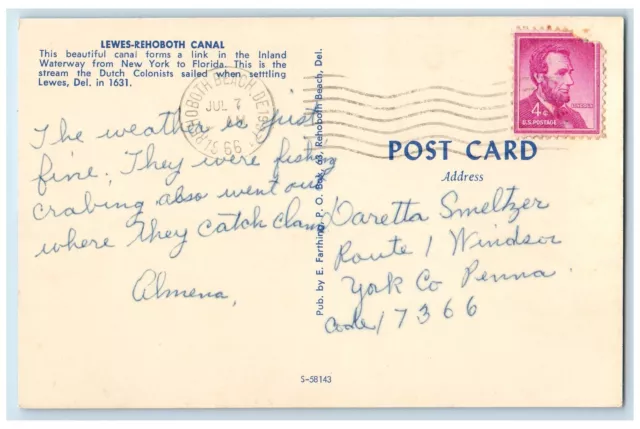 LEWES-REHOBOTH CANAL
This beautiful canal forms a link in the Inland
Waterway from New York to Florida. This is the
stream the Dutch Colonists sailed when setttling
Lewes, Del. in 1631.
REHOBOTH BEACH, DEL.
JUL 7
AM
66
4¢
U.S. POSTAGE
The weather is just
fine. They were fishing
crabing also went out
where they catch clams
Almena,
Pub. by E. Farthing, P. O. Box 63, Rehoboth Beach, Del.
POST CARD
Address
Daretta Smeltzer
Route 1 Windsor
York Co Penna.
Code 17366
S-58143